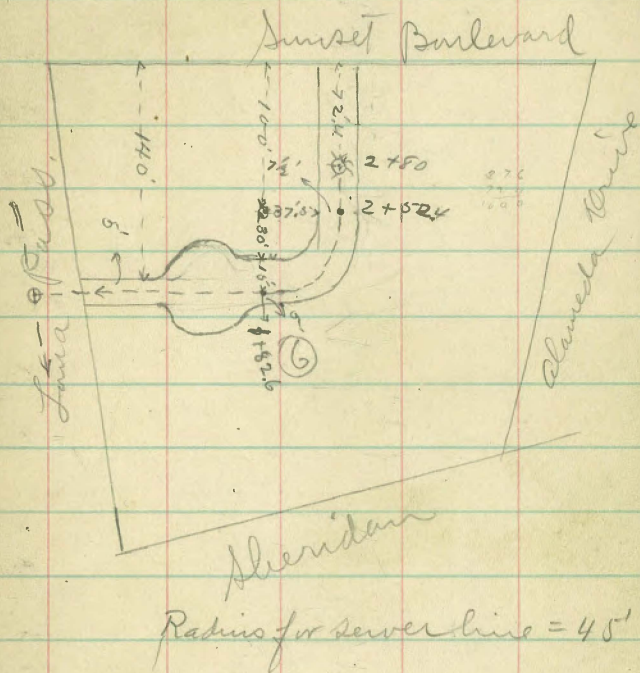 Sunset Boulevard
140'
100'
72.4
7½'
2+80
37.5
2+52.4
9'
80'
15'
5'
1+82.6
6
Pass.
Loma
Alameda Drive
Sheridan
Radius for sewer line = 45'